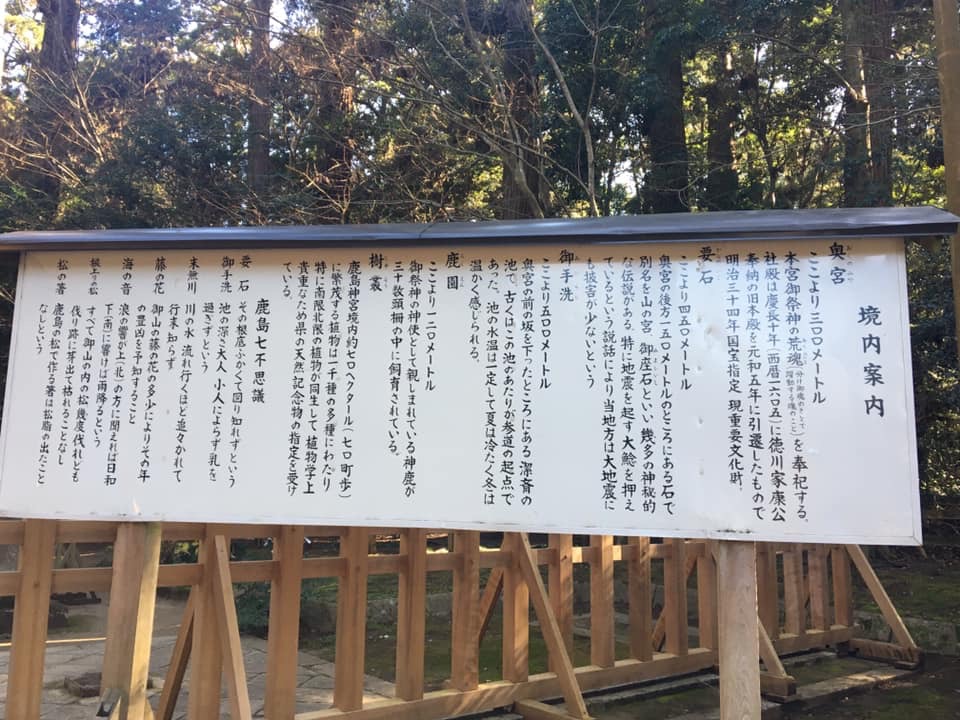 境内案内
奥宮
おくのみや
ここより三〇〇メートル
本宮御祭神の荒魂(分け御魂のさして躍動する魂のこと)を奉祀する。
社殿は慶長十年(西暦一六〇五)に徳川家康公
奉納の旧本殿を元和五年に引遷したもので
明治三十四年国宝指定 現重要文化財。
要石
かなめいし
ここより四五〇メートル
奥宮の後方一五〇メートルのところにある石で
別名を山の宮、御座石といい幾多の神秘的
な伝説がある。特に地震を起す大鯰を押え
ているという説話により当地方は大地震に
も被害が少ないという
御手洗
みたらし
ここより五〇〇メートル
奥宮の前の坂を下ったところにある潔斎の
池で、古くはこの池のあたりが参道の起点で
あった。池の水温は一定して夏は冷たく冬は
温かく感じられる。
鹿園
ろくえん
ここより一二〇メートル
御祭神の神使として親しまれている神鹿が
三十数頭柵の中に飼育されている。
樹叢
じゅそう
鹿島神宮境内約七〇ヘクタール(七〇町歩)
に繁茂する植物は一千種の多種にわたり
特に南限北限の植物が同生して植物学上
貴重なため県の天然記念物の指定を受け
ている。
鹿島七不思議
要石 その根底ふかくて図り知れずという
御手洗 池の深さ大人小人によらず乳を
過ぎずという
末無川 川の水 流れ行くほど追々かれて
行末知らず
藤の花 御山の藤の花の多少によりその年
の豊凶を予知すること
海の音 浪の響が上(北)の方に聞えれば日和
下(南)に響けば雨降るという
根上りの松 すべて御山の内の松幾度伐れども
伐り跡に芽出て枯れることなし
松の箸 鹿島の松で作る箸は松脂の出たこと
なしという